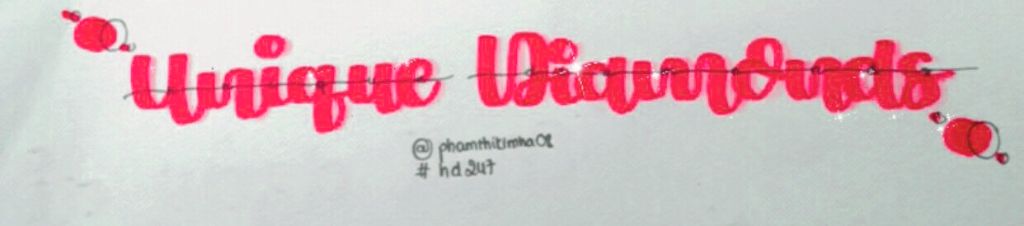 Unique Diamonds
@phamthikimha08
#hd247